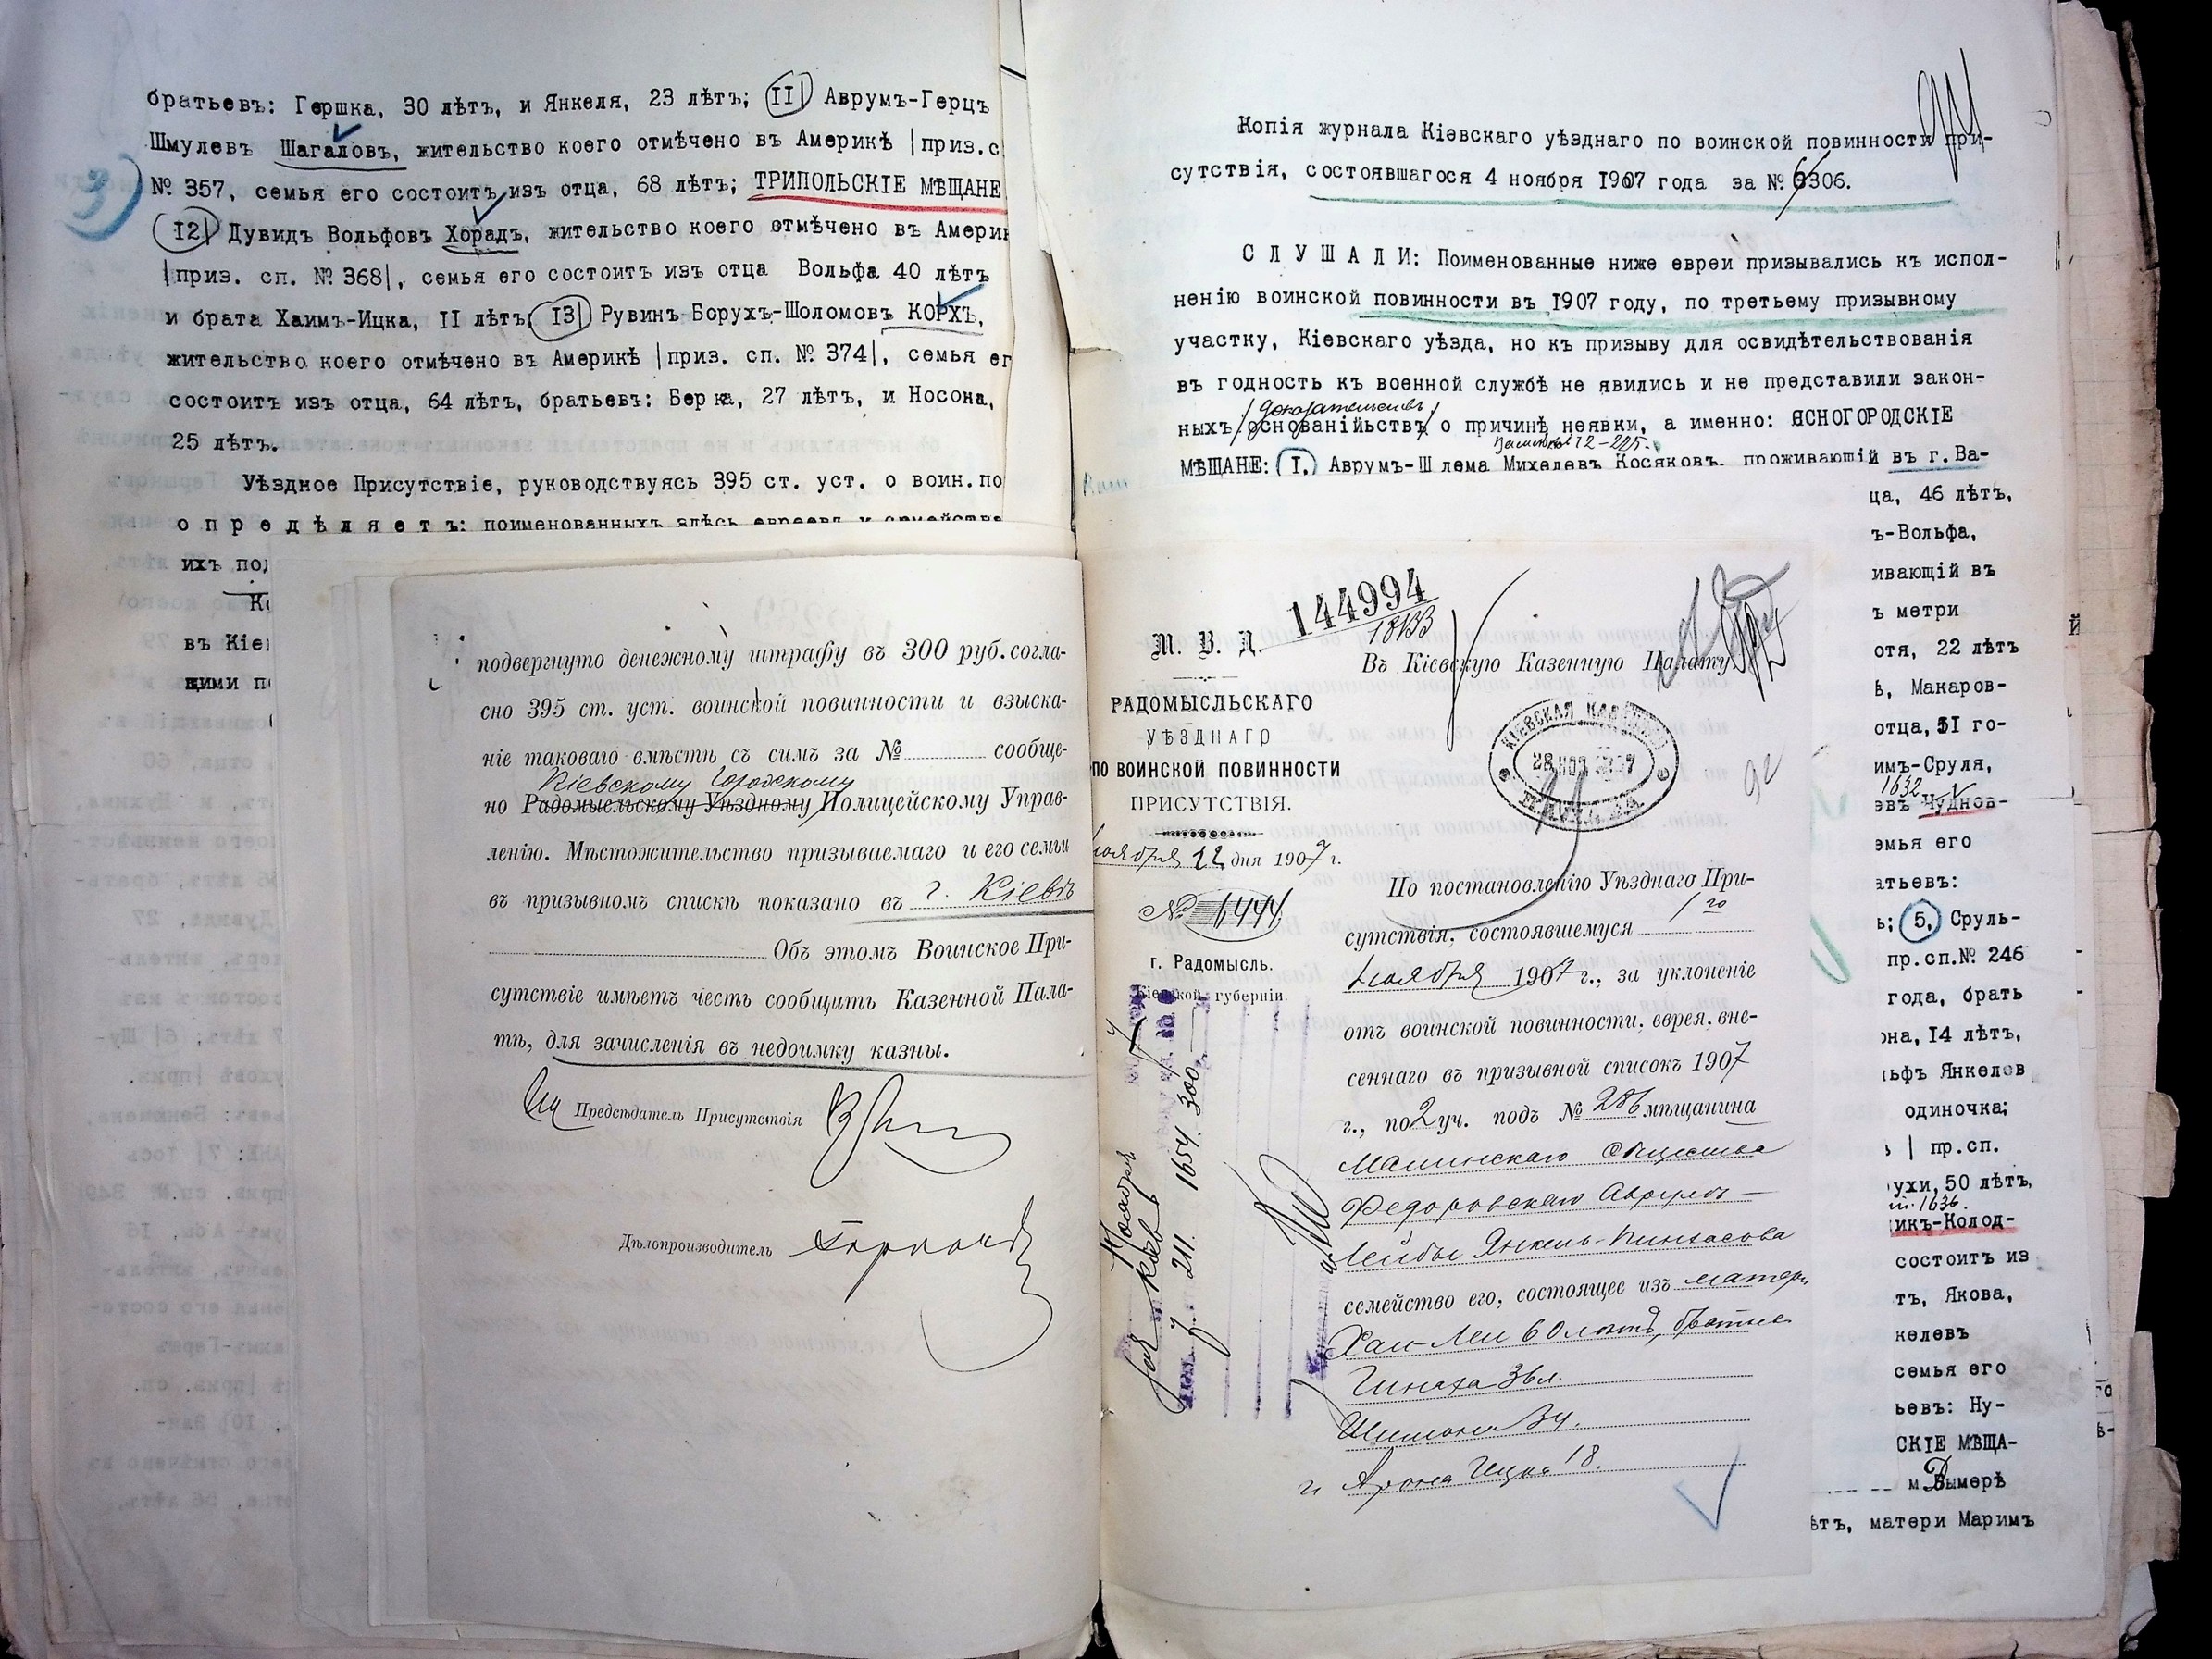 братьевъ: Гершка, 30 лѣтъ, и Янкеля, 23 лѣтъ; II| Аврумъ-Герцъ
Шмулевъ Шагаловъ, жительство коего отмѣчено въ Америкѣ |приз.с
№ 357, семья его состоитъ изъ отца, 68 лѣтъ; ТРИПОЛЬСКІЕ МѢЩАНЕ
I2| Дувидъ Вольфовъ Хорадъ, жительство коего отмѣчено въ Америк
|приз. сп. № 368|, семья его состоитъ изъ отца Вольфа 40 лѣтъ
и брата Хаимъ-Ицка, II лѣтъ; I3| Рувинъ-Борухъ-Шоломовъ КОРХЪ,
жительство коего отмѣчено въ Америкѣ |приз. сп. № 374|, семья ег
состоитъ изъ отца, 64 лѣтъ, братьевъ: Берка, 27 лѣтъ, и Носона,
25 лѣтъ.
Уѣздное Присутствіе, руководствуясь 395 ст. уст. о воин.по
о п р е д ѣ л я е т ъ: поименованныхъ здѣсь евреевъ и семейства
ихъ под
Ко
въ Кіев
щими по
подвергнуто денежному штрафу въ 300 руб. согла-
сно 395 ст. уст. воинской повинности и взыска-
ніе таковаго вмѣстѣ съ симъ за № сообще-
Кіевскому Городскому
но Радомысльскому Уѣздному Полицейскому Управ-
ленію. Мѣстожительство призываемаго и его семьи
въ призывномъ спискѣ показано въ г. Кіевѣ
Объ этомъ Воинское При-
сутствіе имѣетъ честь сообщить Казенной Пала-
тѣ, для зачисленія въ недоимку казны.
Предсѣдатель Присутствія
Дѣлопроизводитель
Копія журнала Кіевскаго уѣзднаго по воинской повинности при-
сутствія, состоявшагося 4 ноября I907 года за № 6306.
С Л У Ш А Л И: Поименованные ниже евреи призывались къ испол-
ненію воинской повинности въ I907 году, по третьему призывному
участку, Кіевскаго уѣзда, но къ призыву для освидѣтельствованія
въ годность къ военной службѣ не явились и не представили закон-
доказательствъ
ныхъ основанійьствъ о причинѣ неявки, а именно: ЯСНОГОРОДСКІЕ
МѢЩАНЕ: I. Аврумъ-Шлема Михелевъ Косяковъ, проживающій въ г.Ва-
144994
М. В. Д.
РАДОМЫСЛЬСКАГО
УѢЗДНАГО
ПО ВОИНСКОЙ ПОВИННОСТИ
ПРИСУТСТВІЯ.
ноября 22 дня 1907 г.
№ 1444
г. Радомысль.
Кіевской губерніи.
Въ Кіевскую Казенную Палату
КІЕВСКАЯ КАЗЕННАЯ
28 НОЯ 1907
ПАЛАТА
По постановленію Уѣзднаго При-
сутствія, состоявшемуся 1го
ноября 1907 г., за уклоненіе
отъ воинской повинности, еврея, вне-
сеннаго въ призывной списокъ 1907
г., по 2 уч. подъ № 286 мѣщанина
Малинскаго Общества
Федоровскаго Аврумъ-
Лейбы Янкель-Пинхасова
семейство его, состоящее изъ матери
Хаи-Леи 60 лѣтъ, братьев
36 л.
Шимона 34.
и Арона Ицка 18.
ца, 46 лѣтъ,
ъ-Вольфа,
ивающій въ
ъ метри
отя, 22 лѣтъ
ѣ, Макаров-
отца, 5I го-
имъ-Сруля,
1632
евъ Чуднов-
емья его
атьевъ:
ь; 5. Сруль-
пр.сп.№ 246
года, братъ
она, I4 лѣтъ,
ьфъ Янкелев
одиночка;
| пр.сп.
ухи, 50 лѣтъ,
1636.
икъ-Колод-
состоитъ из
тъ, Якова,
келевъ
семья его
ьевъ: Ну-
СКІЕ МѢЩА-
м.Дымерѣ
ѣтъ, матери Маримъ